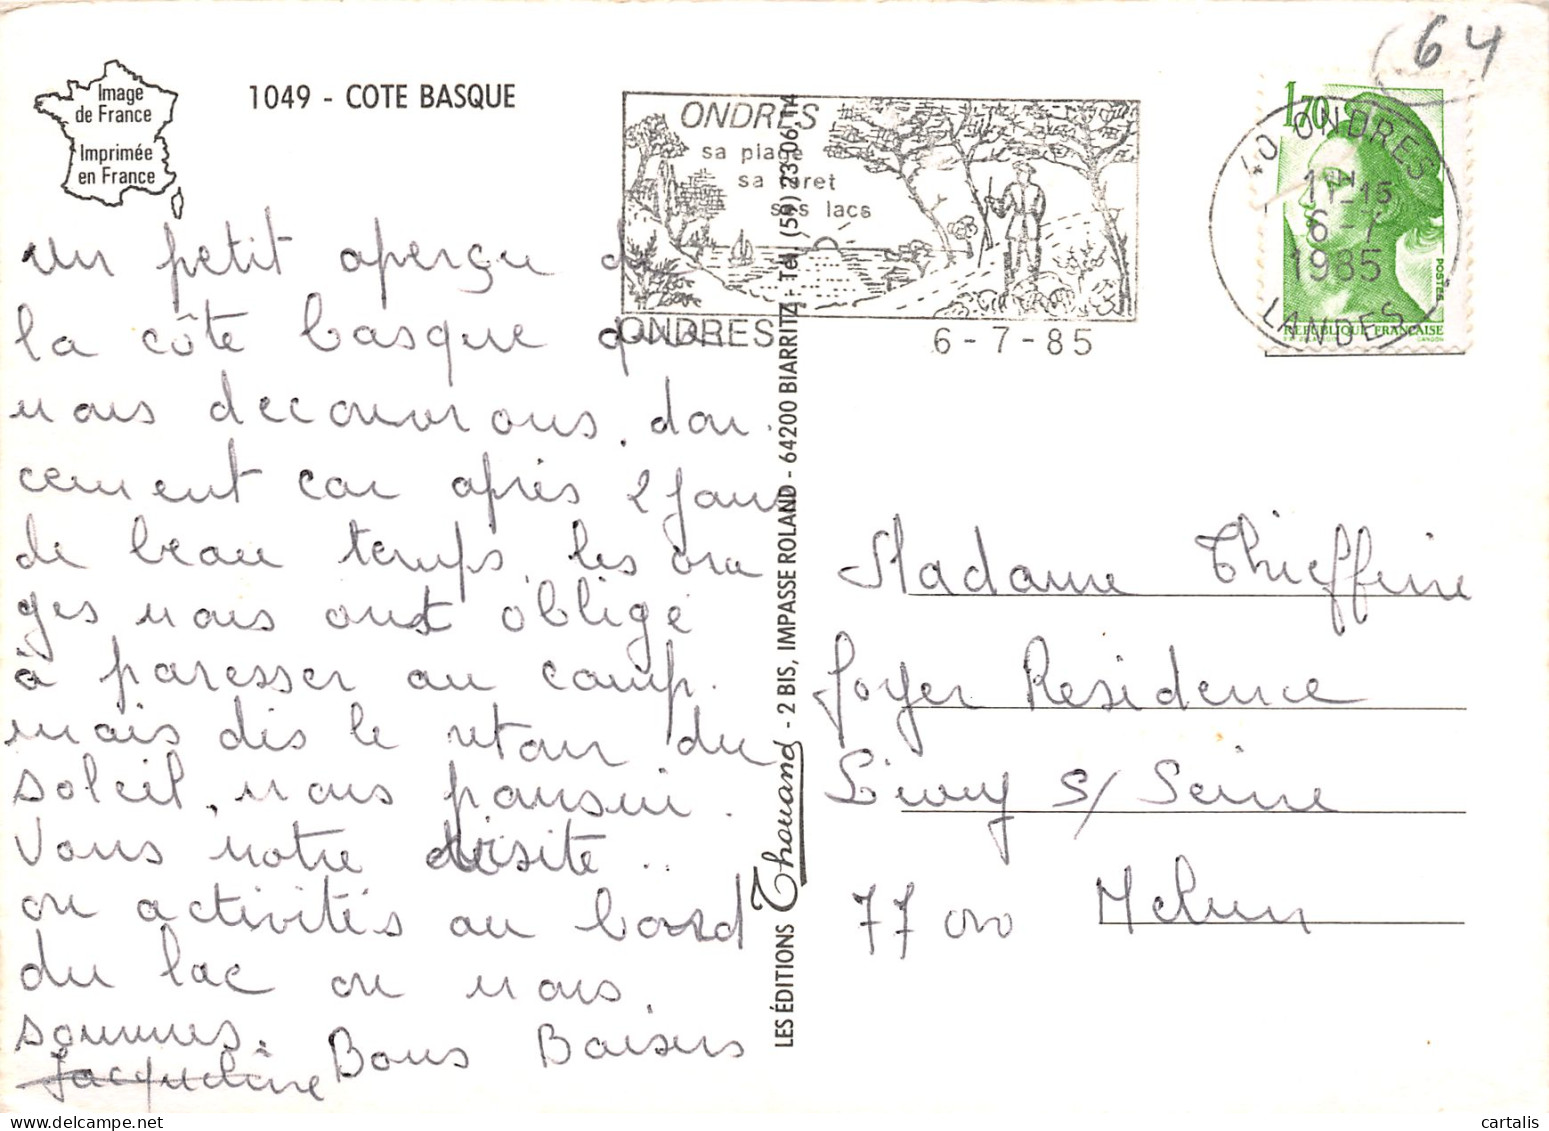 Image
de France
Imprimée
en France
1049 - COTE BASQUE
64
ONDRES
sa plage
sa foret
ses lacs
ONDRES
6-7-85
1,70
40 ONDRES
11H15
6-7
1985
LANDES
POSTES
REPUBLIQUE FRANCAISE
GANDON
Un petit aperçu de
la côte basque que
nous decouvrons dou
cement car après 2 jours
de beau temps, les ora
ges nous ont obligé
à paresser au camp.
mais dès le retour du
soleil, nous poursui.
vons notre visite ..
ou activités au bord
du lac ou nous
sommes.
Bons Baisers
Jacqueline
LES ÉDITIONS Thouand - 2 BIS, IMPASSE ROLAND - 64200 BIARRITZ - Tél. (59) 23.06.14
Madame Thieffine
Foyer Residence
Livry s/ Seine
77000 Melun
cartalis